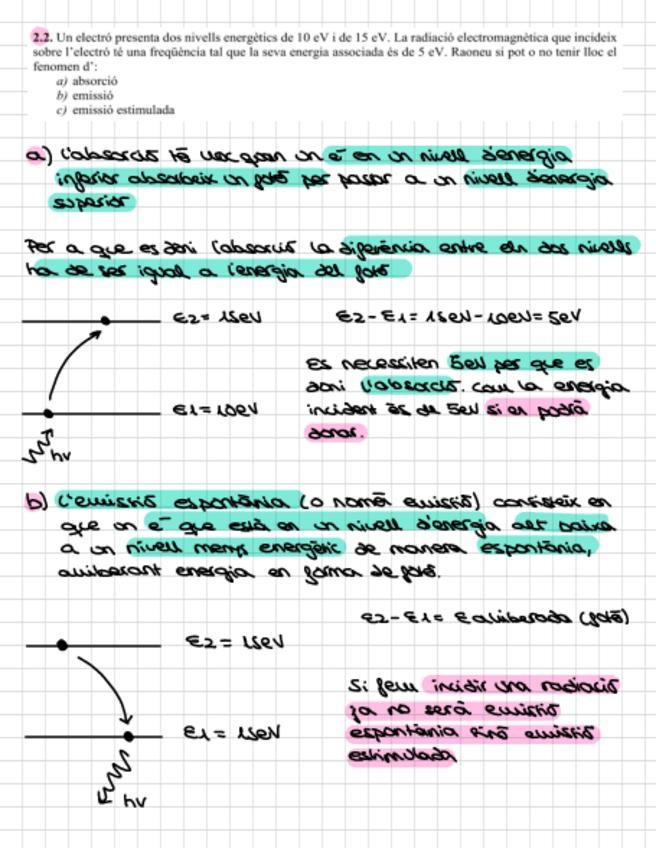 2.2. Un electró presenta dos nivells energètics de 10 eV i de 15 eV. La radiació electromagnètica que incideix
sobre l'electró té una freqüència tal que la seva energia associada és de 5 eV. Raoneu si pot o no tenir lloc el
fenomen d':
a) absorció
b) emissió
c) emissió estimulada
a) L'absorció té lloc quan un e⁻ en un nivell d'energia
inferior absorbeix un fotó per passar a un nivell d'energia
superior
Per a que es doni l'absorció la diferència entre els dos nivells
ha de ser igual a l'energia del fotó
E2 = 15eV
E2 - E1 = 15eV - 10eV = 5eV
Es necessiten 5eV per que es
doni l'absorció. Com la energia
E1 = 10eV
incident és de 5eV si es podrà
donar.
hv
b) L'emissió espontània (o només emissió) consisteix en
que un e⁻ que està en un nivell d'energia alt baixa
a un nivell menys energètic de manera espontània,
alliberant energia en forma de fotó.
E2 - E1 = E alliberada (fotó)
E2 = 15eV
Si fem incidir una radiació
ja no serà emissió
E1 = 15eV
espontània sinó emissió
estimulada
hv